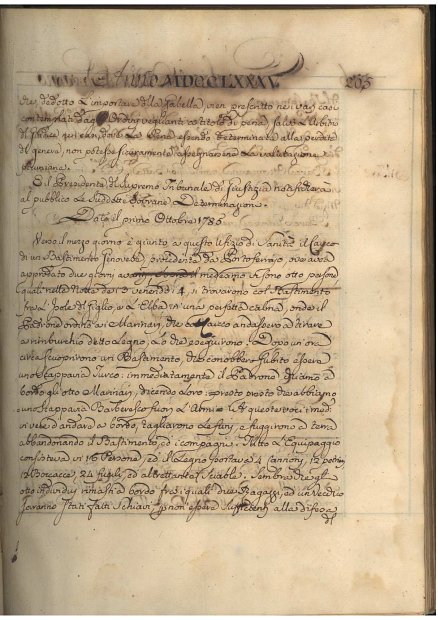 Anno MDCCLXXXV. 265
dedotto l'importare della Gabella, vien prescritto
contemplati a titolo di pena, salvo l'Arbitrio
essendo determinata alla perdita
del genere, non potesse la valutazione
E il Presidente del Supremo Tribunale di Giustizia notificherà
al pubblico le suddette Sovrane Determinazioni
Data il primo Ottobre 1785
Verso il mezzo giorno è giunto a questo Ufizio di Sanità il
di un Bastimento Genovese, proveniente da Portoferrajo, ove era
approdato due giorni medesimo sono otto persone
quali nella Notte dei 3 venendo i 4 si trovarono col Bastimento
fra l'Isole di Giglio, e l'Elba in una perfetta calma, onde il
Padrone ordinò ai Marinari, che andassero a tirare
a rimburchio detto Legno, lo che eseguirono: Dopo un ora
circa scuoprirono un Bastimento, che conobbero subito essere
uno Sciappavia Turco: immediatamente il Padrone chiamò a
bordo gli otto Marinari, dicendo loro: presto presto che abbiamo
uno Sciappavia Barbaresco fuori l'Armi. A queste voci i mede-
in vece d'andare a bordo, tagliarono le funi, e fuggirono a terra
abbandonando il Bastimento, ed i compagni. Tutto l'Equipaggio
consisteva in 16 Persone, ed il Legno portava 4 Cannoni,
24 fucili, ed altrettante Sciable. Sembra che gli
otto individui rimasti a bordo fra i quali due Ragazzi, ed un Vecchio
saranno stati fatti Schiavi non essere sufficienti alla difesa
del